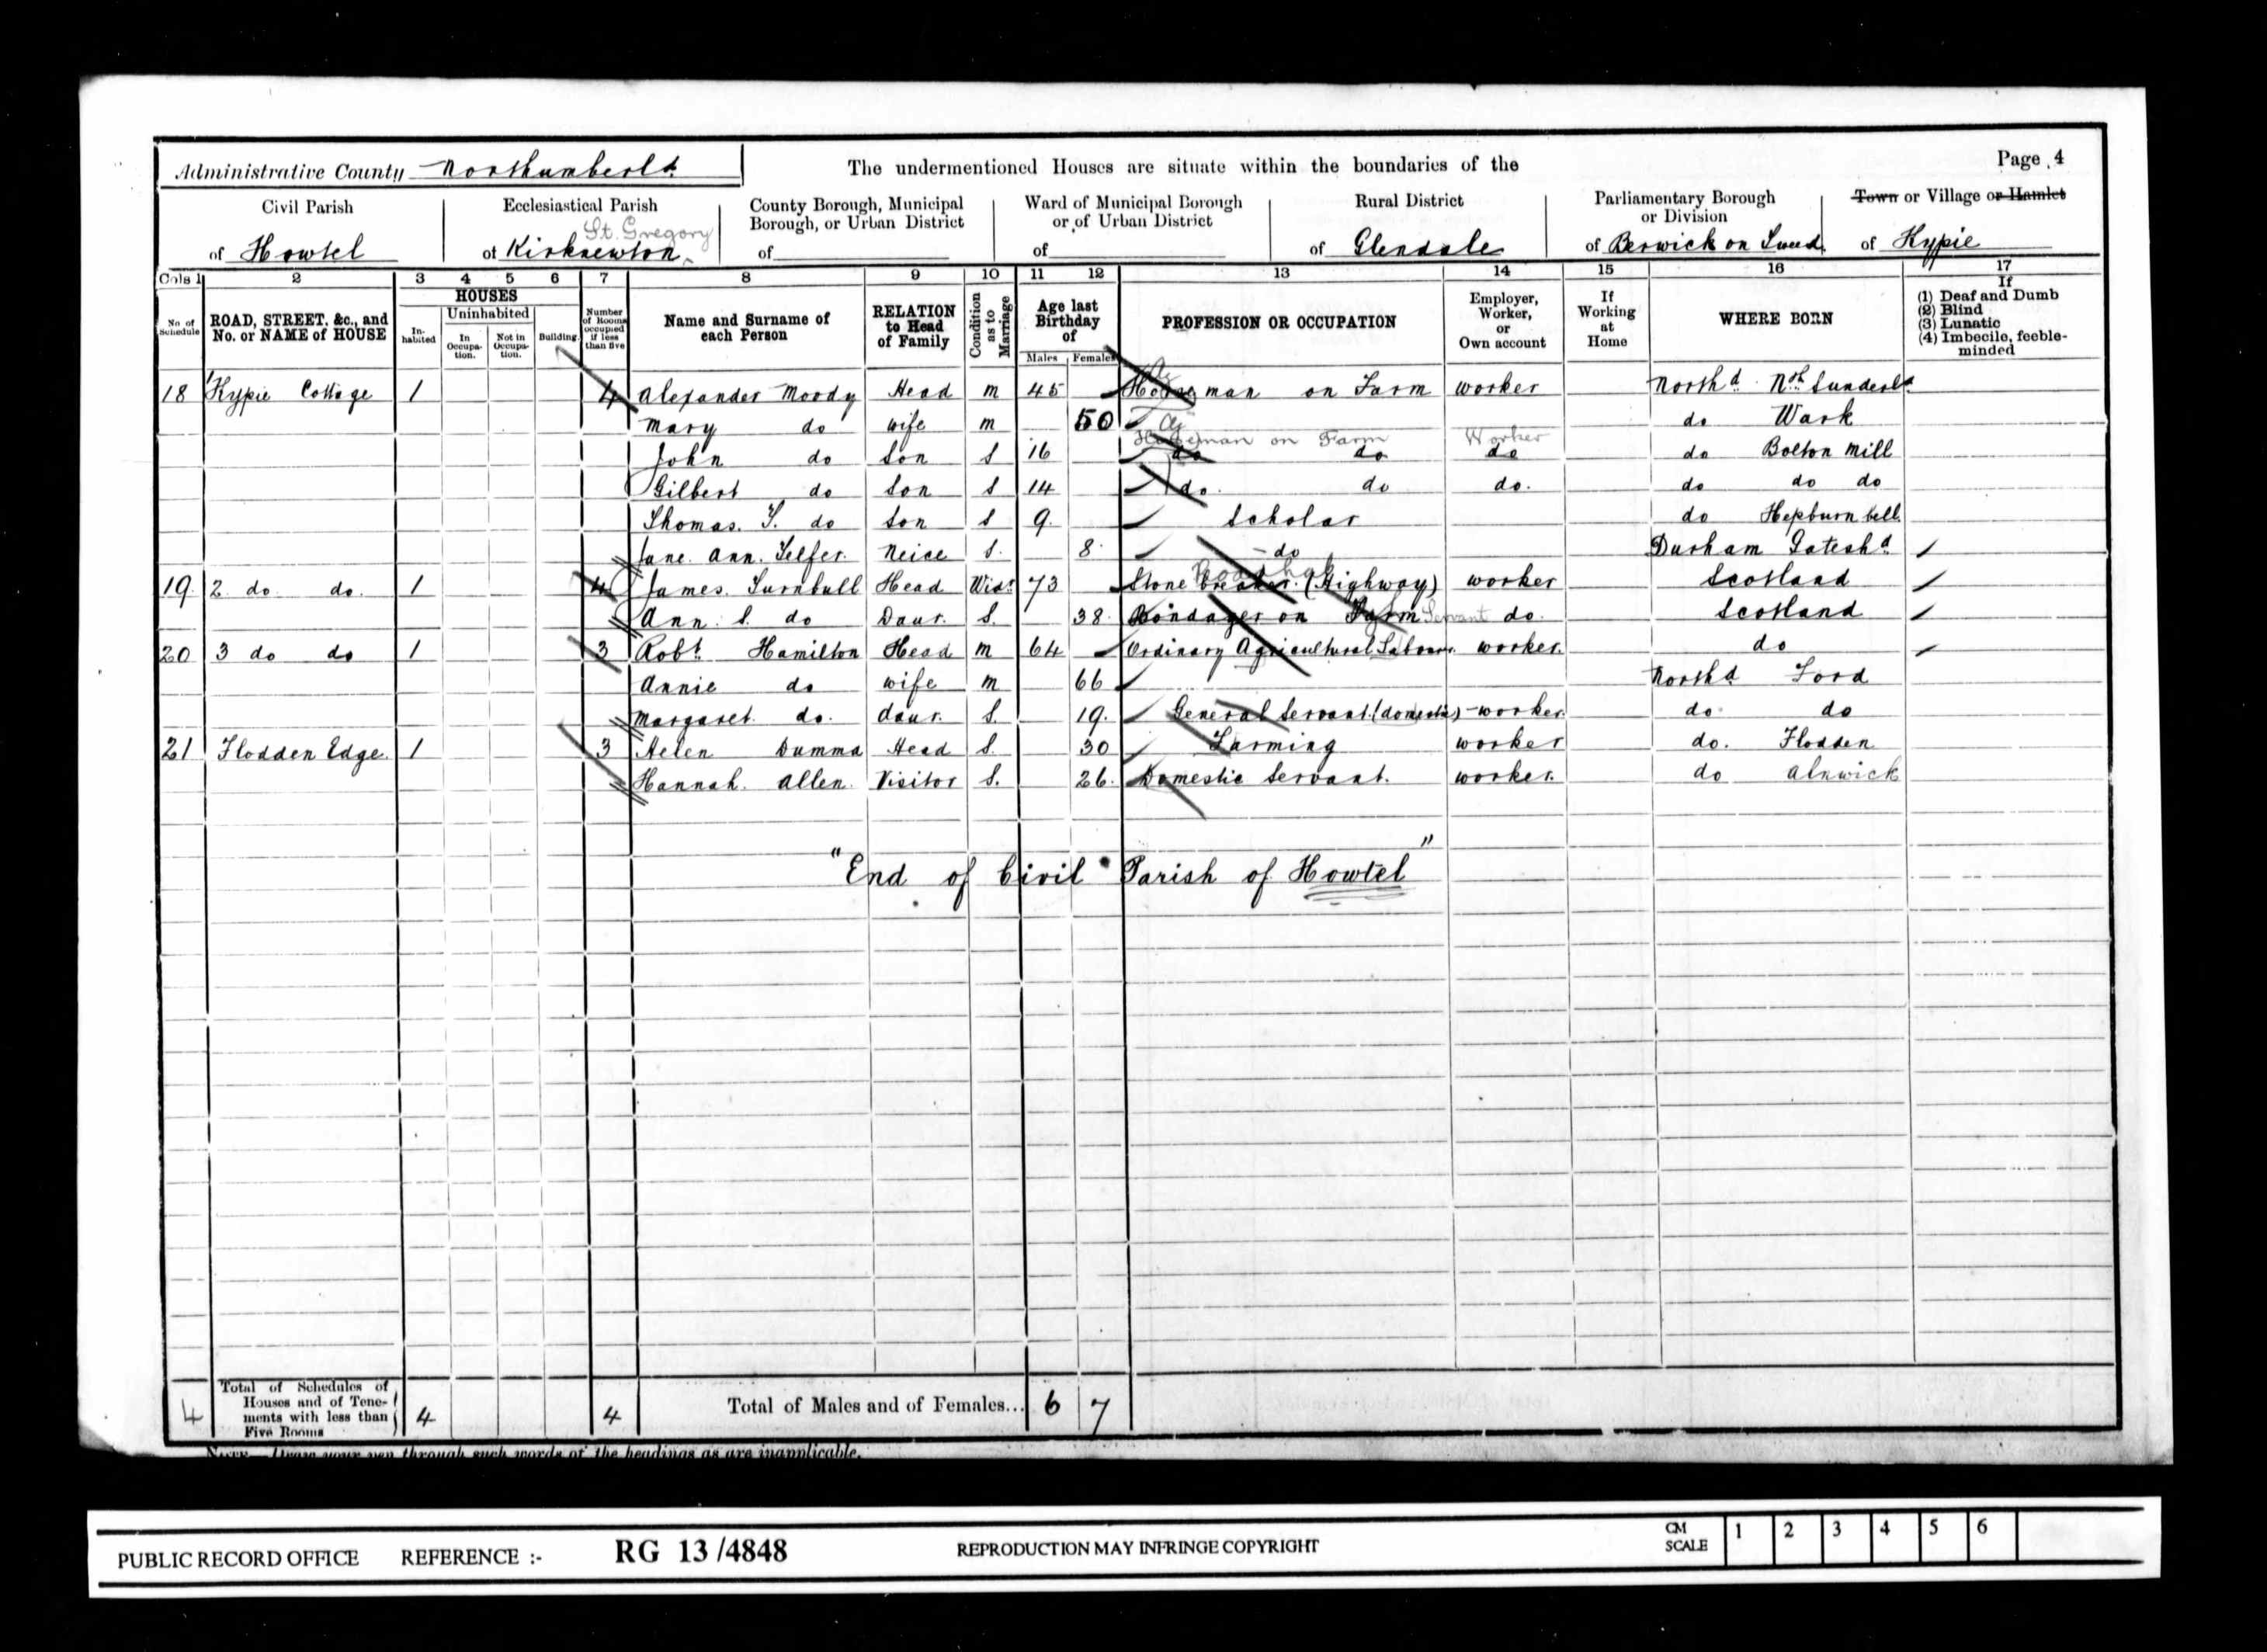 Administrative County Northumberld.
The undermentioned Houses are situate within the boundaries of the
Page 4
Civil Parish
of Howtel
Ecclesiastical Parish
St. Gregory
of Kirknewton
County Borough, Municipal
Borough, or Urban District
of
Ward of Municipal Borough
or of Urban District
of
Rural District
of Glendale
Parliamentary Borough
or Division
of Berwick on Tweed.
Town or Village or Hamlet
of Kypie
Cols 1 2 3 4 5 6 7 8 9 10 11 12 13 14 15 16 17
No of Schedule
ROAD, STREET, &c., and
No. or NAME of HOUSE
HOUSES
In-habited
Uninhabited
In Occupa-tion.
Not in Occupa-tion.
Building
Number of Rooms occupied if less than five
Name and Surname of
each Person
RELATION
to Head
of Family
Condition as to Marriage
Age last
Birthday
of
Males Females
PROFESSION OR OCCUPATION
Employer,
Worker,
or
Own account
If
Working
at
Home
WHERE BORN
If
(1) Deaf and Dumb
(2) Blind
(3) Lunatic
(4) Imbecile, feeble-
minded
18 1 Kypie Cottage 1 4 Alexander Moody Head M 45 Horseman on Farm worker Northd. Nth. Sunderld
Mary do wife M 50 do Wark
Horseman on Farm Worker
John do Son S 16 do do do do Bolton Mill
Gilbert do Son S 14 do. do do. do do do
Thomas. T. do Son S 9. Scholar do Hepburn bell.
Jane. Ann. Telfer. Neice S. 8. do Durham Gateshd
19. 2. do. do. 1 4 James. Turnbull Head Widr. 73 Stone breaker. (Highway) worker Scotland
Ann. S. do Daur. S. 38. Bondager on Farm Servant do. Scotland
20 3 do do 1 3 Robt. Hamilton Head M 64 Ordinary Agricultural Labourer. worker. do
Annie do wife M 66 Northd Ford
Margaret. do. daur. S. 19. General Servant (domestic) worker. do. do
21 Flodden Edge. 1 3 Helen Dumma Head S. 30 Farming worker do. Flodden
Hannah. Allen. Visitor S. 26. Domestic Servant. worker. do Alnwick
"End of Civil Parish of Howtel"
4 Total of Schedules of
Houses and of Tene-
ments with less than
Five Rooms
4 4 Total of Males and of Females... 6 7
NOTE—Draw your pen through such words of the headings as are inapplicable.
PUBLIC RECORD OFFICE REFERENCE :- RG 13 /4848 REPRODUCTION MAY INFRINGE COPYRIGHT CM SCALE 1 2 3 4 5 6